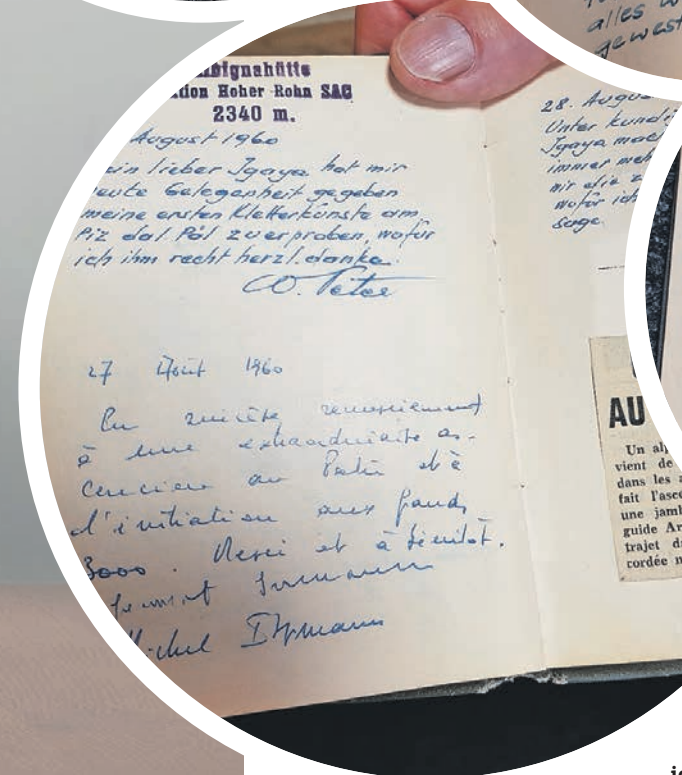 bignahütte
tion Hoher Rohn SAC
2340 m.
August 1960
ein lieber Igaya hat mir
eute Gelegenheit gegeben
meine ersten Kletterkünste am
Piz dal Pal zu erproben, wofür
ich ihm recht herzl. danke.
W. Peter
27 Août 1960
En sincère remerciement
à une extraordinaire as-
cencion au et à
l'initiation aux grands
3000. Merci et à bientôt.
28. Augu
Unter kundi
Igaya mac
immer meh
mir die z
wofür ich
sage.
AU
Un alp
vient de
dans les a
fait l'asce
une jamb
guide Ar
trajet d
cordée n
alles w
gewest